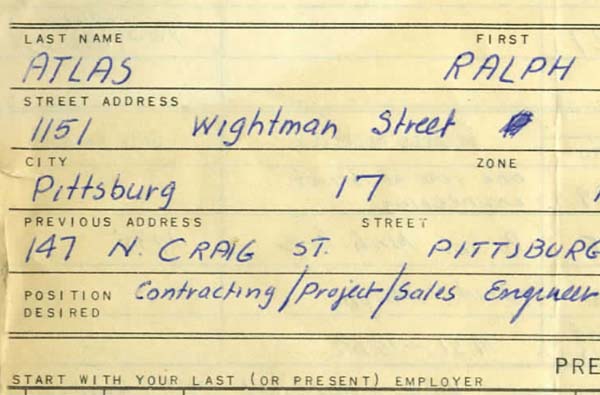 LAST NAME FIRST
ATLAS RALPH
STREET ADDRESS
1151 Wightman Street
CITY ZONE
Pittsburg 17
PREVIOUS ADDRESS STREET
147 N. CRAIG ST. PITTSBURG
POSITION DESIRED Contracting/Project/Sales Engineer
PRE
START WITH YOUR LAST (OR PRESENT) EMPLOYER